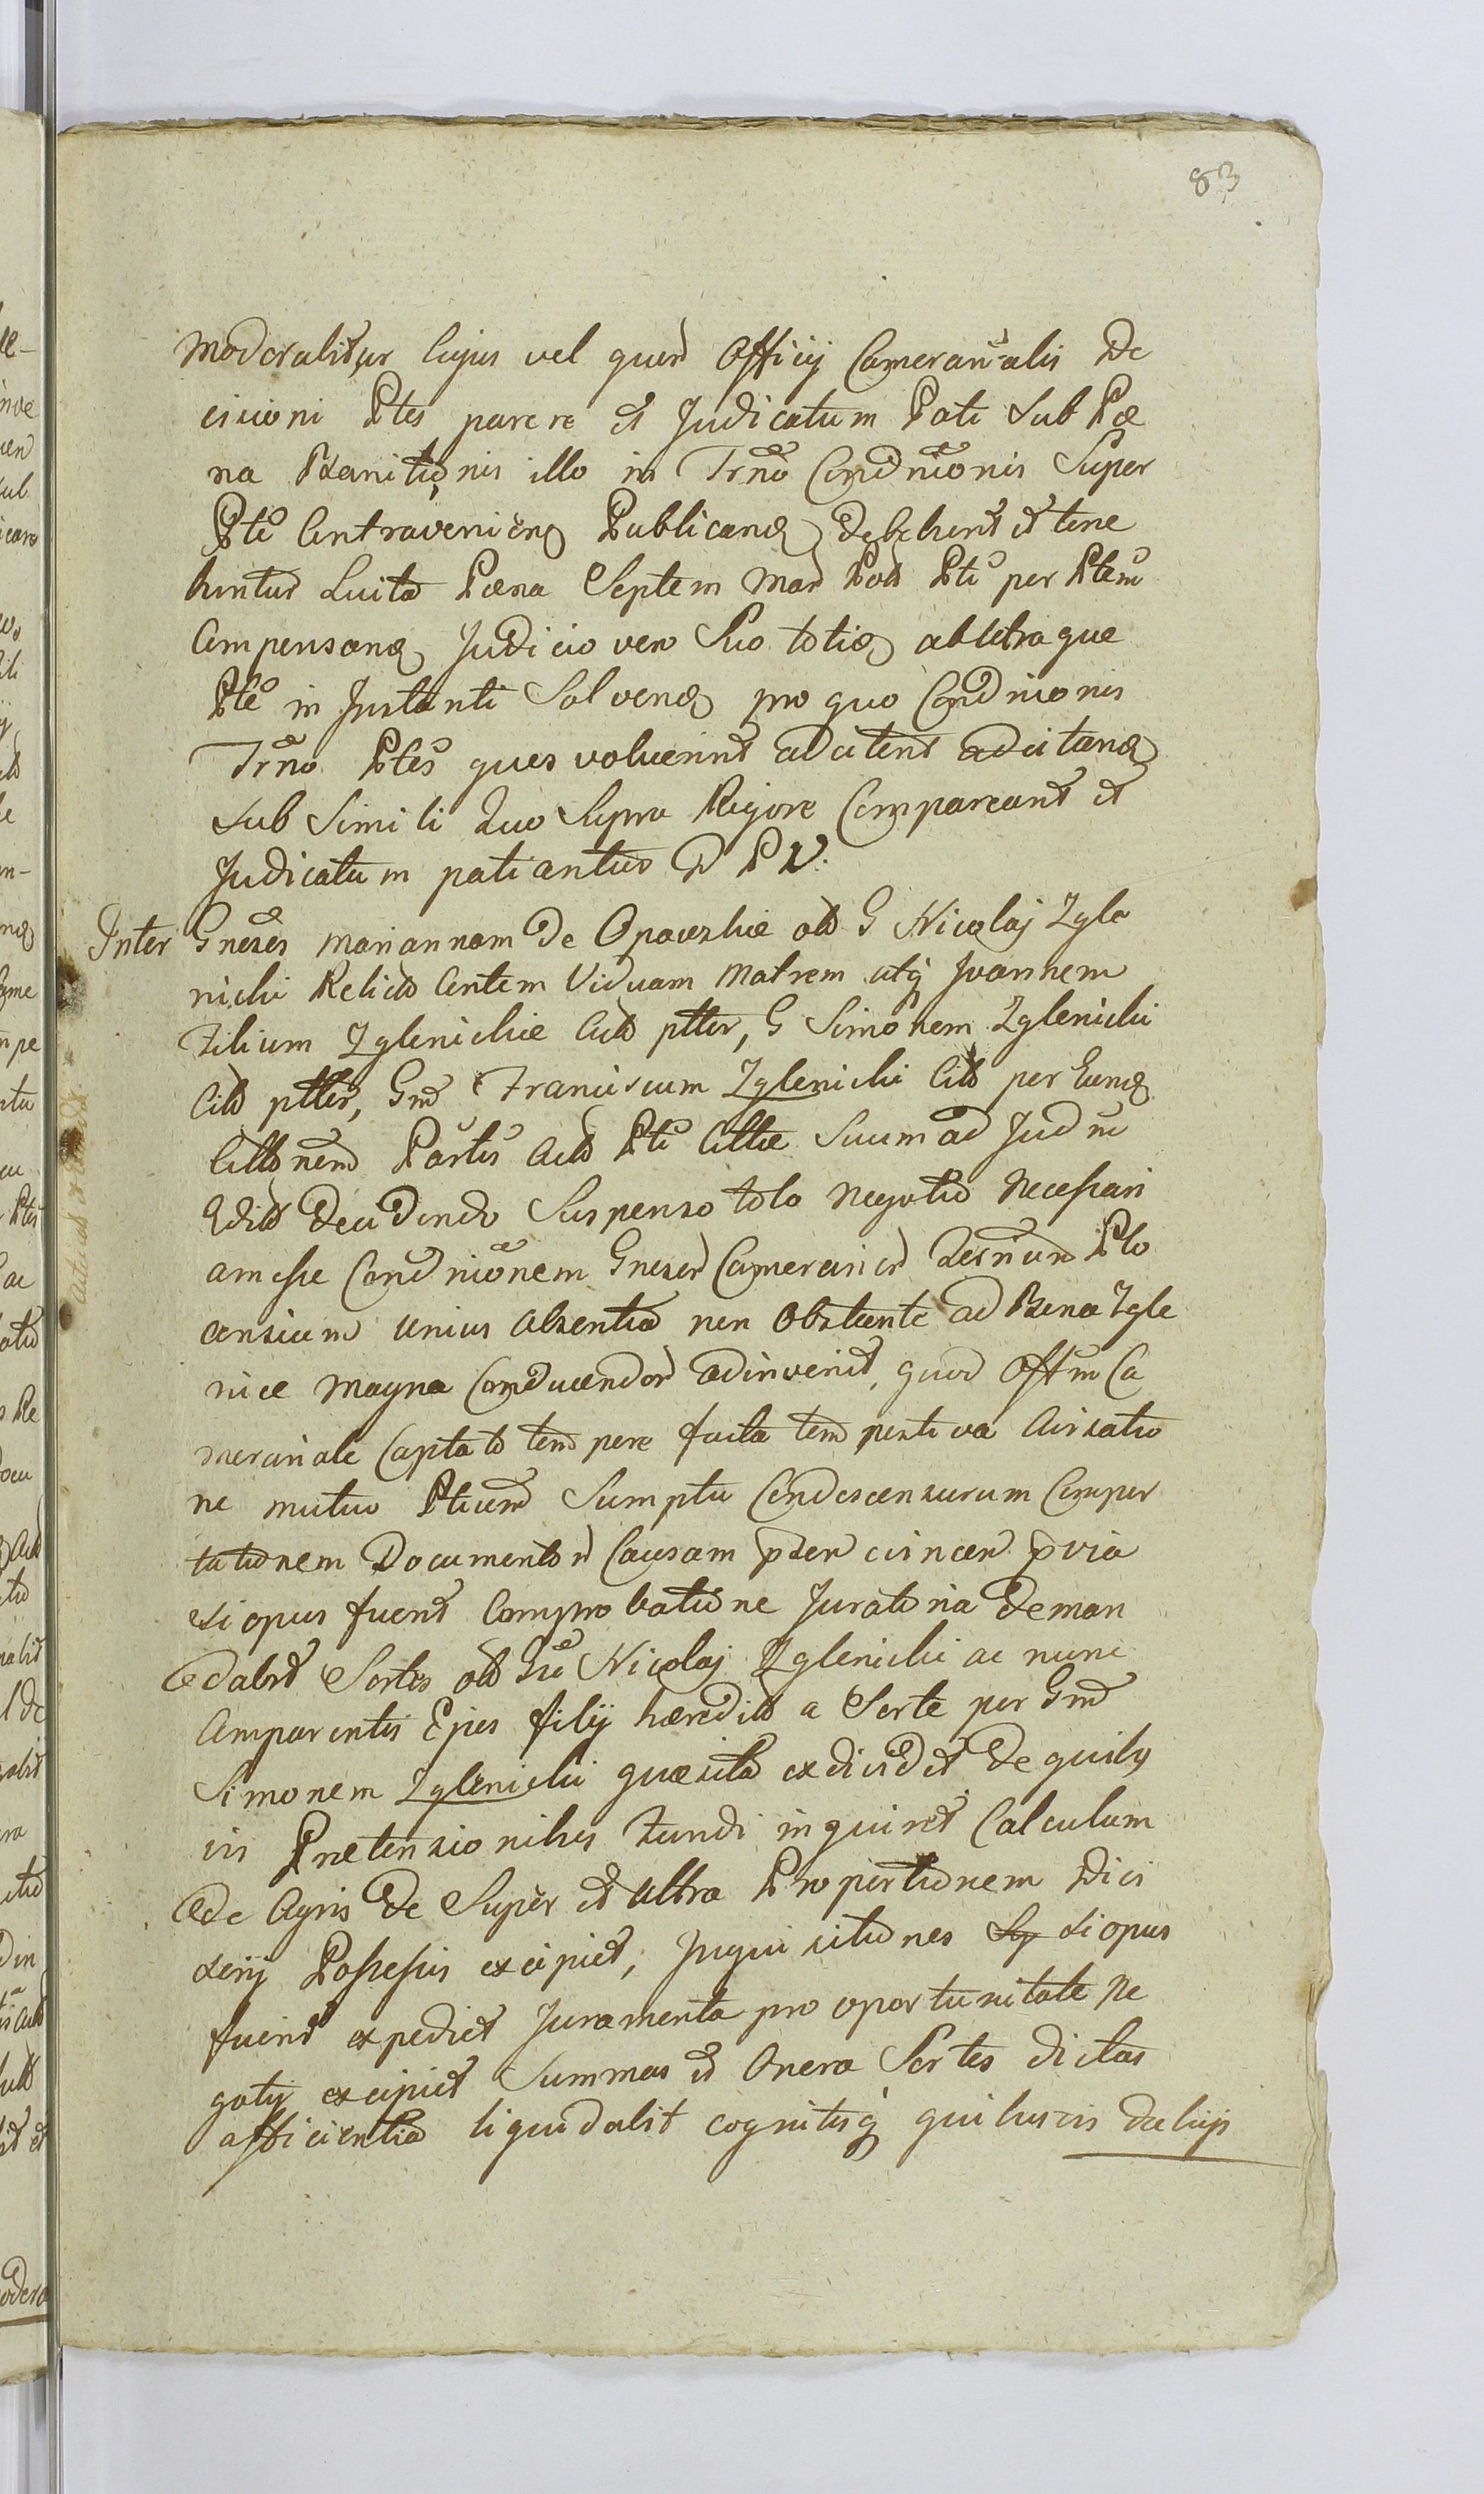 83
Moderabitur Cujus vel quod Officij Camerarialis De
cisioni Ptes parere et Judicatum Pati sub Pæ
na Banitionis illo in Trno Condnionis Super
Pte Contravenien Publicand debebunt et tene
buntur Luita Pæna Septem Mar Pol Pti per Ptem
Compensand Judicio vero Suo toties ab Utraque
Pte in Instanti Solvend pro quo Condnionis
Trno Ptes ques voluerint adcitent adcitand
sub Simili quo Supra Rigore Compareant et
Judicatum patiantur D P V.
Inter Gneses Mariannam de Opacskie olb G Nicolaj Zgle
nicki Relictb Consortem Viduam Matrem atq Joannem
Filium Zglenickie Citb ptter, G Simonem Zglenicki
Citb ptter, Gmd Franciscum Zglenicki Citb per Eund
Citlbnemd Partis Actb Pti Cittæ Suum ad Judm
Editb Decidendo Suspenso toto Negotio Necessari
am esse Condnionem Gnesrd Camerarior Terrium Plo
censium unius absentia non Obstante ad Bona Zgle
nice Magna Conducendor adinvenit, quod Offm Ca
merariale Captato tempore facta tempestiva Avisatio
ne mutuo Ptium Sumptu Condescensurum Compor
tationem Documentor Causam pster cincer pvia
si opus fuerit Comprobatione Juratoria deman
dabit Sortes olb Gsi Nicolaj Zglenicki ac nunc
Comparentis Ejus filij hæreditb a Sorte per Gmd
Simonem Zglenicki quæsita exdividet de quibq
vis Prætensionibus Fundi inquiret Calculum
de Agris de Super et Ultra Proportionem Divi
sorij Possessis excipiet, Inquisitiones si opus
fuerit expediet Juramenta pro oportunitate Ne
gotij excipiet Summas et Onera Sortes dictas
afficientia liquidabit cognitisq quibusvis delijs